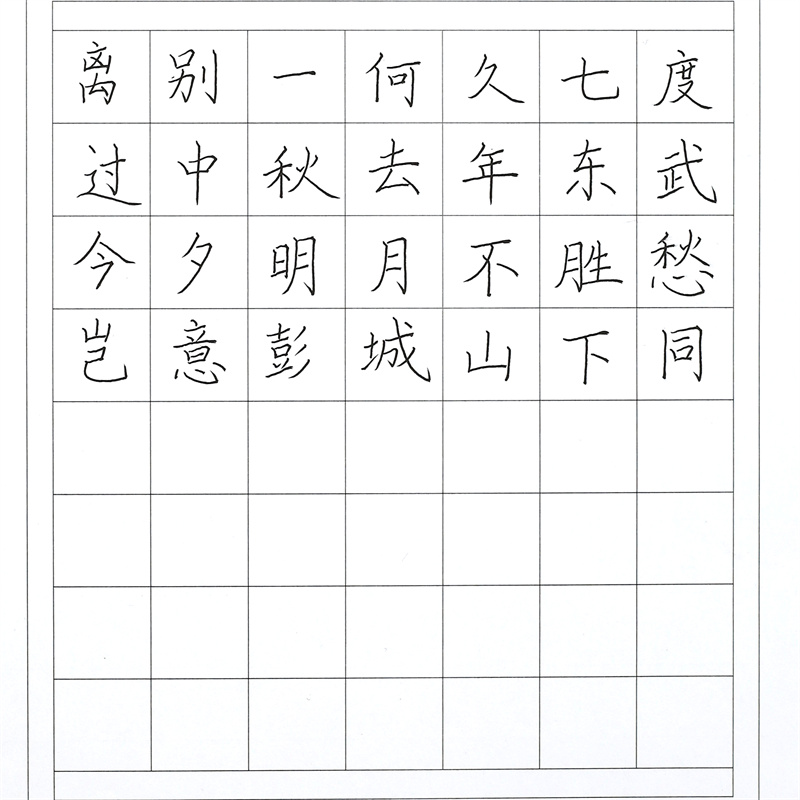 离别一何久七度
过中秋去年东武
今夕明月不胜愁
岂意彭城山下同